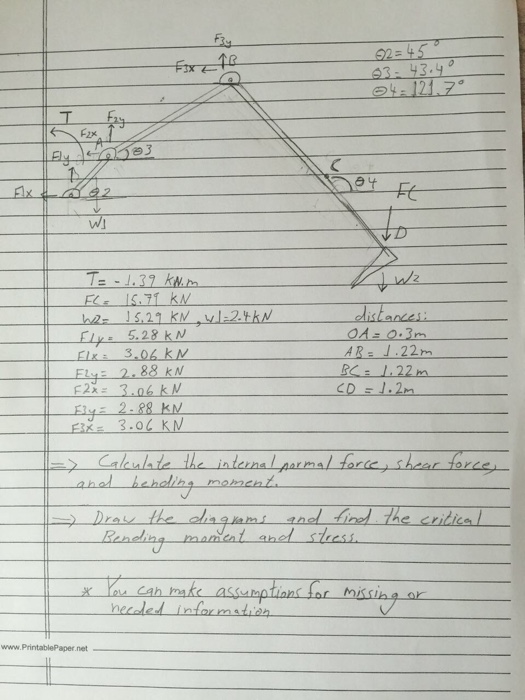 F3y
F3x B
θ2=45°
θ3=43.4°
θ4=121.7°
T F2y
F2x A
F1y θ3
C θ4
F1x θ2
FC
W1
D
W2
T= -1.39 kN.m
FC= 15.79 kN
W2= 15.29 kN, W1=2.4kN
distances:
F1y= 5.28 kN
OA= 0.3m
F1x= 3.06 kN
AB= 1.22m
F2y= 2.88 kN
BC= 1.22m
F2x= 3.06 kN
CD = 1.2m
F3y= 2.88 kN
F3x= 3.06 kN
=> Calculate the internal normal force, shear force,
and bending moment.
=> Draw the diagrams and find the critical
Bending moment and stress.
* You can make assumptions for missing or
needed information
www.PrintablePaper.net